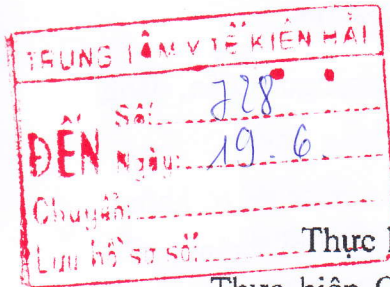 TRUNG TÂM Y TẾ KIÊN HẢI
ĐẾN
Số: 728
Ngày: 19.6
Chuyển:
Lưu hồ sơ số:
Thực
Thực hiện